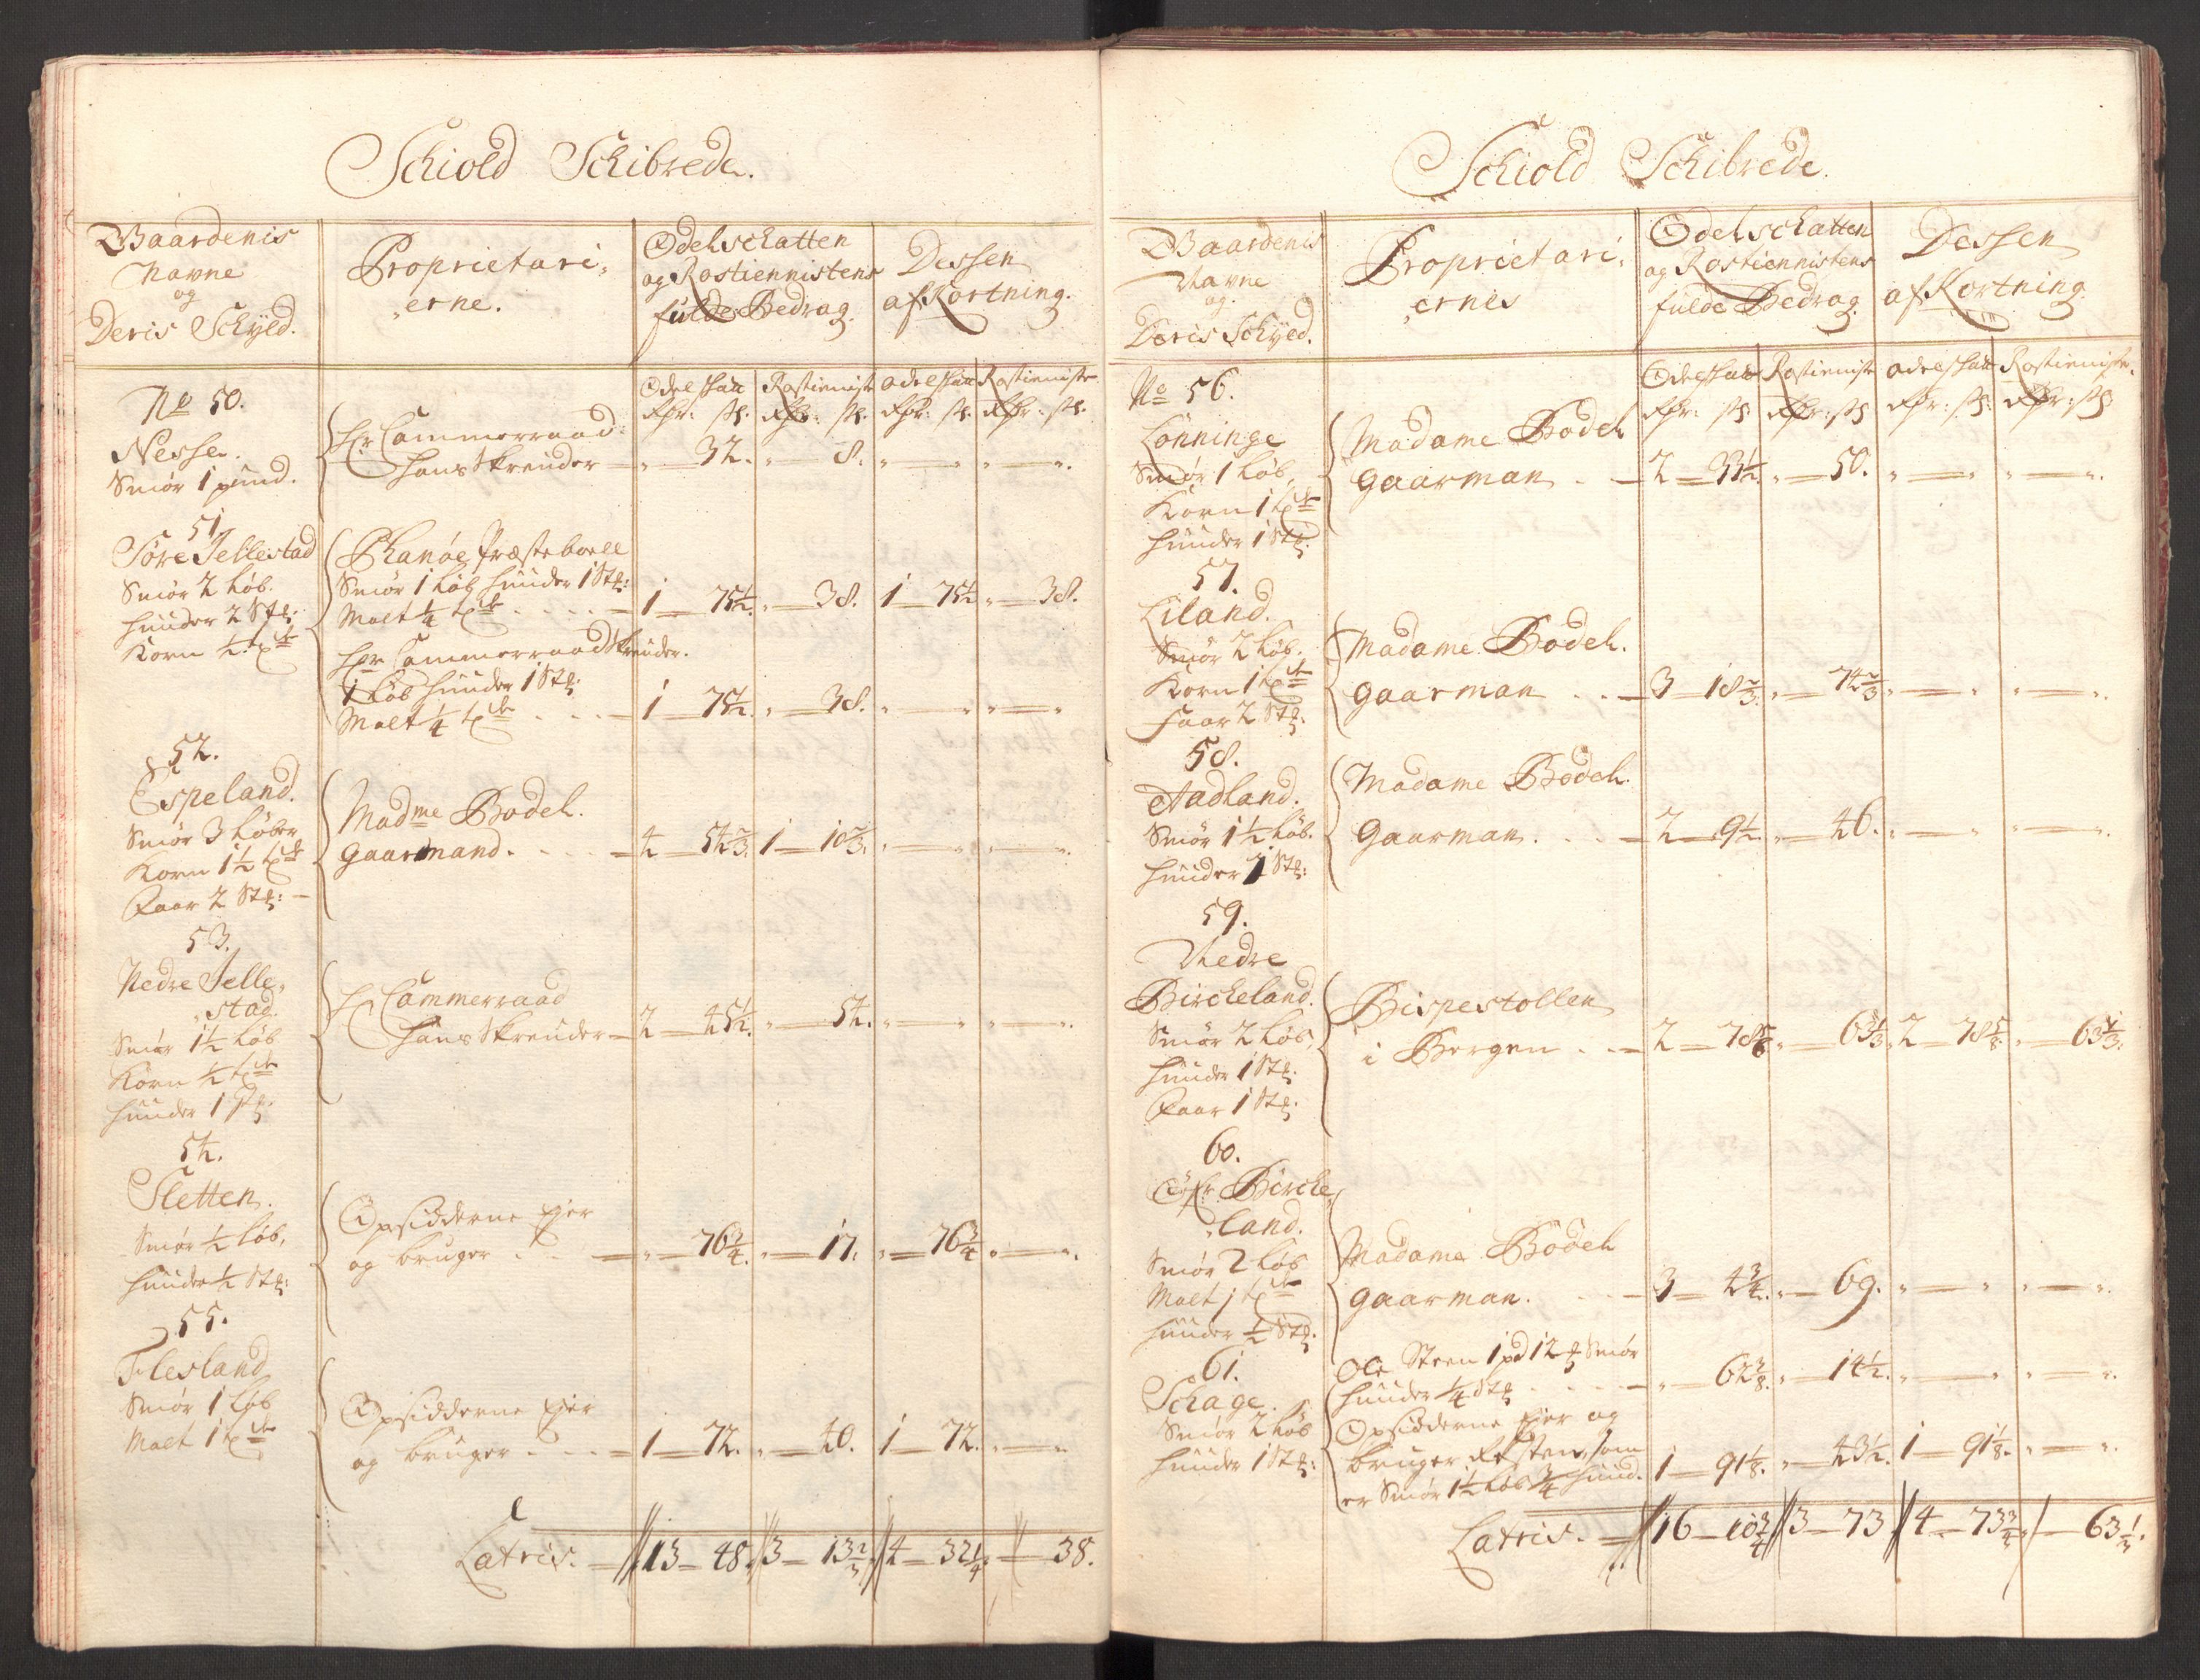 Schiold Schibrede.
Gaardenis
Navne
og
Deris Schyld.
Proprietari,
,erne.
Odelschatten
og Rostiennistens
fulde Bedrag.
Dessen
afKortning.
Odelschatt Rostieniste odelschatt Rostieniste
Rdr: s. Rdr: s. Rdr: s. Rdr: s.
No 50.
Nesse.
Smør 1 pund.
Hr Cammerraad
Hans Skreuder — " — 32. " — 8. " — " " — ".
51.
Søre Jellestad
Smør 2 Løb.
Huuder 2 St:
Korn ½ t
Phanøe Præsteboell
Smør 1 Løb Huuder 1 St:
Malt ¼ t . . . . — 1 — 75½. " — 38. 1 — 75½ " — 38.
Hr Cammerraad Skreuder.
1 Løb Huuder 1 St:
Malt ¼ t . . . — 1 — 75½. " — 38. " — " " — "
52.
Espeland.
Smør 3 Løber
Korn 1½ t
Faar 2 St: —
Madme Bodel.
Gaarmand. . . . — 4 — 54⅔. 1 — 10⅔. " — " " — ".
53.
Nedre Jelle,
,stad.
Smør 1½ Løb
Korn ½ t
Huuder 1 St:
Hr Cammerraad
Hans Skreuder — 2 — 45½. " — 54. " — " " — ".
54.
Sletten.
Smør ½ Løb,
Huuder ½ St:
Opsidderne ejer
og bruger . . . — " — 76¾. " — 17. " — 76¾ " — ".
55.
Flesland
Smør 1 Løb
Malt 1 t
Opsidderne ejer
og bruger . . . — 1 — 72. " — 40. 1 — 72. " — "
Latris. — 13 — 48. 3 — 13⅔ 4 — 32¼. — 38.
Schiold Schibrede.
Gaardenis
Navne
og.
Deris Schyld.
Proprietari,
,ernis
Odelschatten
og Rostiennistens
fulde Bedrag.
Dessen
afKortning.
Odelschatt Rostieniste odelschatt Rostieniste.
Rdr: s: Rdr: s: Rdr: s: Rdr: s:
No 56.
Lønninge
Smør 1 Løb,
Korn 1 t
Huuder 1 St:
Madame Bodel
Gaarman . — 2 — 33½. " — 50. " — " " — ".
57.
Liland.
Smør 2 Løb.
Korn 1 t
Faar 2 St:
Madame Bodel.
Gaarman . . — 3 — 18⅔. " — 74⅔. " — " " — ".
58.
Aadland.
Smør 1½ Løb.
Huuder 1 St:
Madame Bodel.
Gaarman. . . — 2 — 9½. " — 46. " — " " — ".
59.
Nedre
Bircheland.
Smør 2 Løb,
Huuder 1 St:
Faar 1 St:
Bispestollen
i Bergen . . — 2 — 78⅚. " — 63⅓. 2 — 78⅚. " — 63⅓.
60.
Øfr. Birche,
,land.
Smør 2 Løb
Malt 1 t
Huuder ½ St:
Madame Bodel
Gaarman. . . — 3 — 4¾. " — 69. " — " " — ".
61.
Schage.
Smør 2 Løb
Huuder 1 St:
Ole Steen 1 pd 12 Smør
Huuder ¼ St: . . . — " — 62⅜. " — 14½. " — " " — ".
Opsidderne ejer og
bruger Resten, som
er Smør 1½ Løb ¾ Huud. 1 — 91⅛. " — 43½. 1 — 91⅛. " — ".
Latris. — 16 — 10¾ 3 — 73 4 — 73¾. — 63⅓.